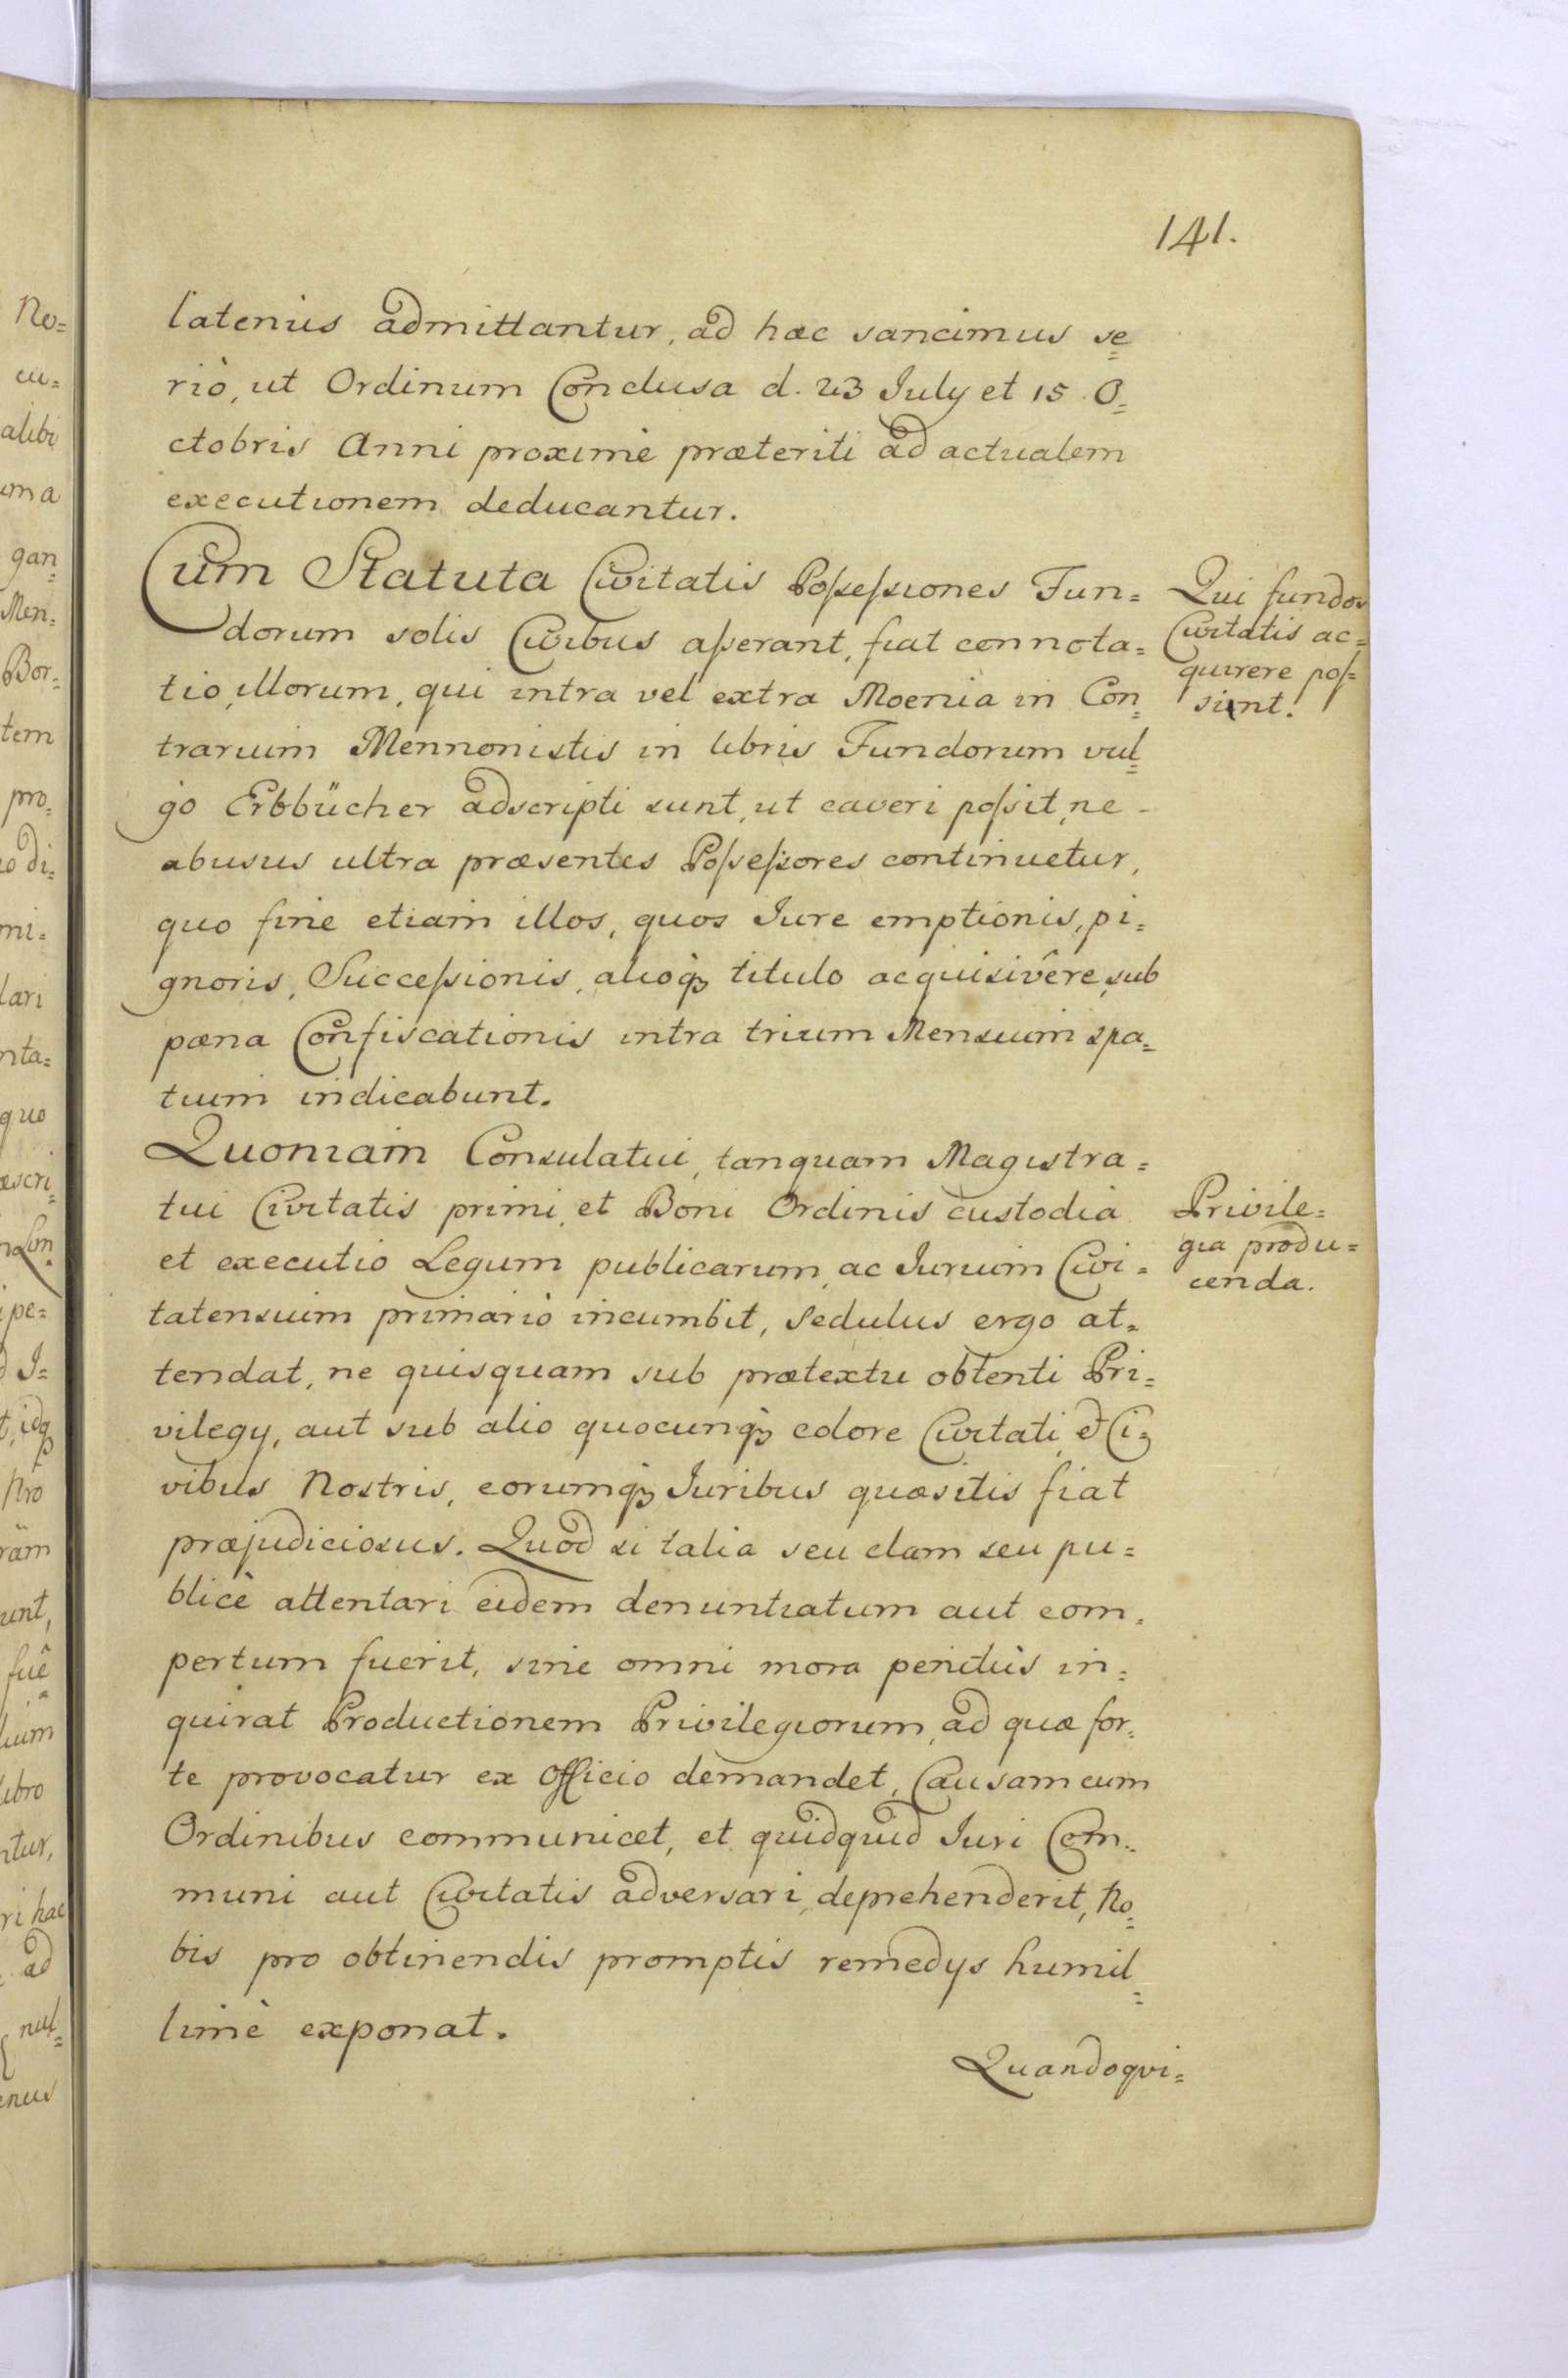 141.
latenus admittantur, ad hæc sancimus se=
riò, ut Ordinum Conclusa d. 23 July et 15. O=
ctobris Anni proximè præteriti ad actualem
executionem deducantur.
Cum Statuta Civitatis Poſseſsiones Fun=
dorum solis Civibus aſserant, fiat connota=
tio, illorum, qui intra vel extra Moenia in Con=
trarium Mennonistis in libris Fundorum vul=
go Erbbücher adscripti sunt, ut caveri poſsit, ne
abusus ultra præsentes Poſseſsores continuetur,
quo fine etiam illos, quos Jure emptionis, pi=
gnoris, Succeſsionis, alioq̃ titulo acquisivêre, sub
pæna Confiscationis intra trium Mensium spa=
tium indicabunt.
Quoniam Consulatui, tanquam Magistra=
tui Civitatis primi, et Boni Ordinis custodia
et executio Legum publicarum, ac Jurium Civi=
tatensium primario incumbit, Sedulus ergo at=
tendat, ne quisquam sub prætextu obtenti Pri=
vilegy, aut sub alio quocunq̃ colore Civitati, et Ci=
vibus Nostris, eorumq̃ Juribus quæsitis fiat
præjudiciosus. Quod si talia seu clam seu pu=
blicè attentari eidem denuntiatum aut com=
pertum fuerit, sine omni mora penitùs in=
quirat Productionem Privilegiorum, ad quæ for=
te provocatur ex Officio demandet, Causam cum
Ordinibus communicet, et quidquid Juri Com=
muni aut Civitatis adversari, deprehenderit, No=
bis pro obtinendis promptis remedys humil=
limè exponat.
Quandoqvi=
Qui fundos
Civitatis ac=
quirere poſ=
sunt.
Privile=
gia produ=
cenda.